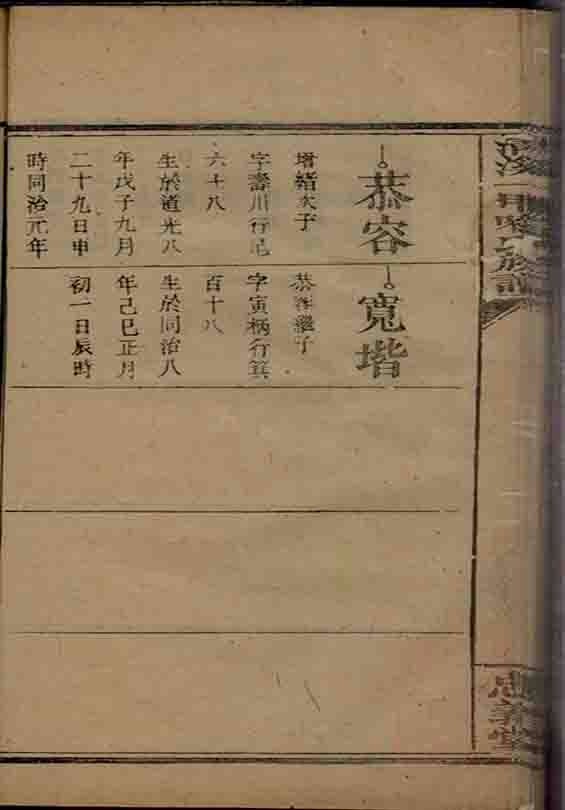 恭容
增緒次子
字壽川行尾
六十八
生於道光八
年戊子九月
二十九日申
時同治元年
寬堦
恭容繼子
字寅柄行箕
百十八
生於同治八
年己巳正月
初一日辰時
族譜
忠義堂